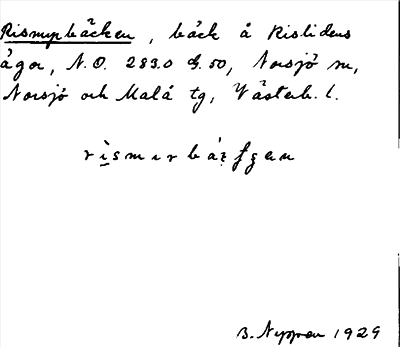 Rismyrbäcken, bäck å Risliдens
ägor, N.O. 283.0 G. 50, Norsjö sn,
Norsjö och Malå tg, Västerb. l.
B. Nyppen 1929